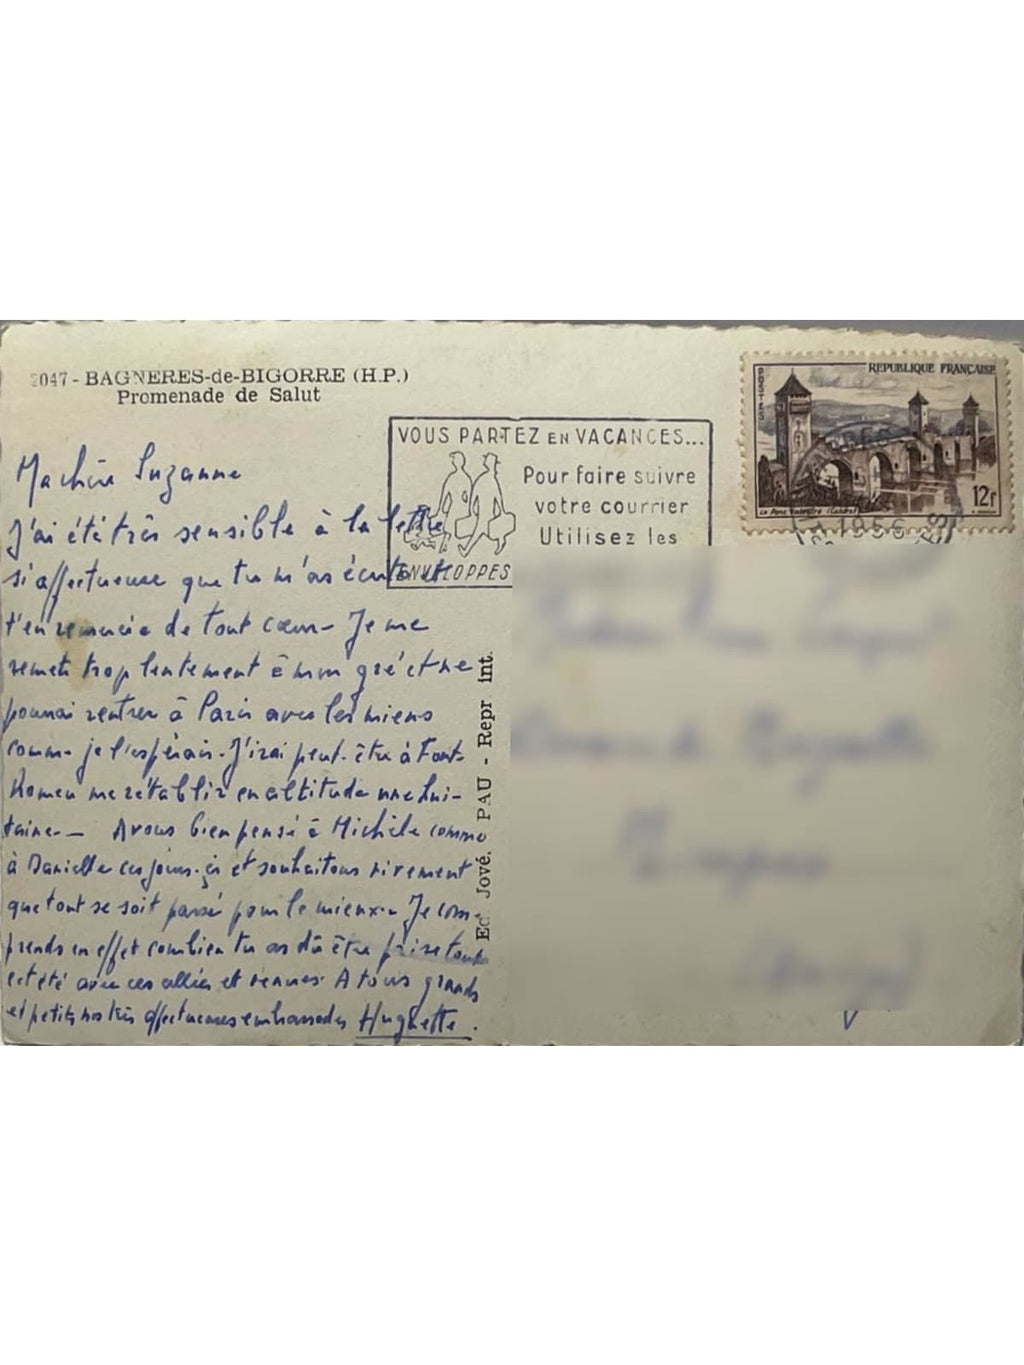 2047 - BAGNERES-de-BIGORRE (H.P.)
Promenade de Salut
VOUS PARTEZ EN VACANCES...
Pour faire suivre
votre courrier
Utilisez les
ENVELOPPES
POSTES
REPUBLIQUE FRANÇAISE
12F
Ma chère Suzanne
J'ai été très sensible à la lettre
si affectueuse que tu m'as écrite et
t'en remercie de tout cœur - Je me
remets trop lentement à mon gré et ne
pourrai rentrer à Paris avec les miens
comme je l'espérais. J'irai peut-être à Font-
Romeu me rétablir en altitude une hui-
taine - Avons bien pensé à Michèle comme
à Danielle ces jours-çi et souhaitons vivement
que tout se soit passé pour le mieux - Je com-
prends en effet combien tu as dû être prise tout
cet été avec ces allées et venues. A tous grands
et petits nos très affectueuses embrassades Huguette.
Ed. Jové. PAU - Repr. int.